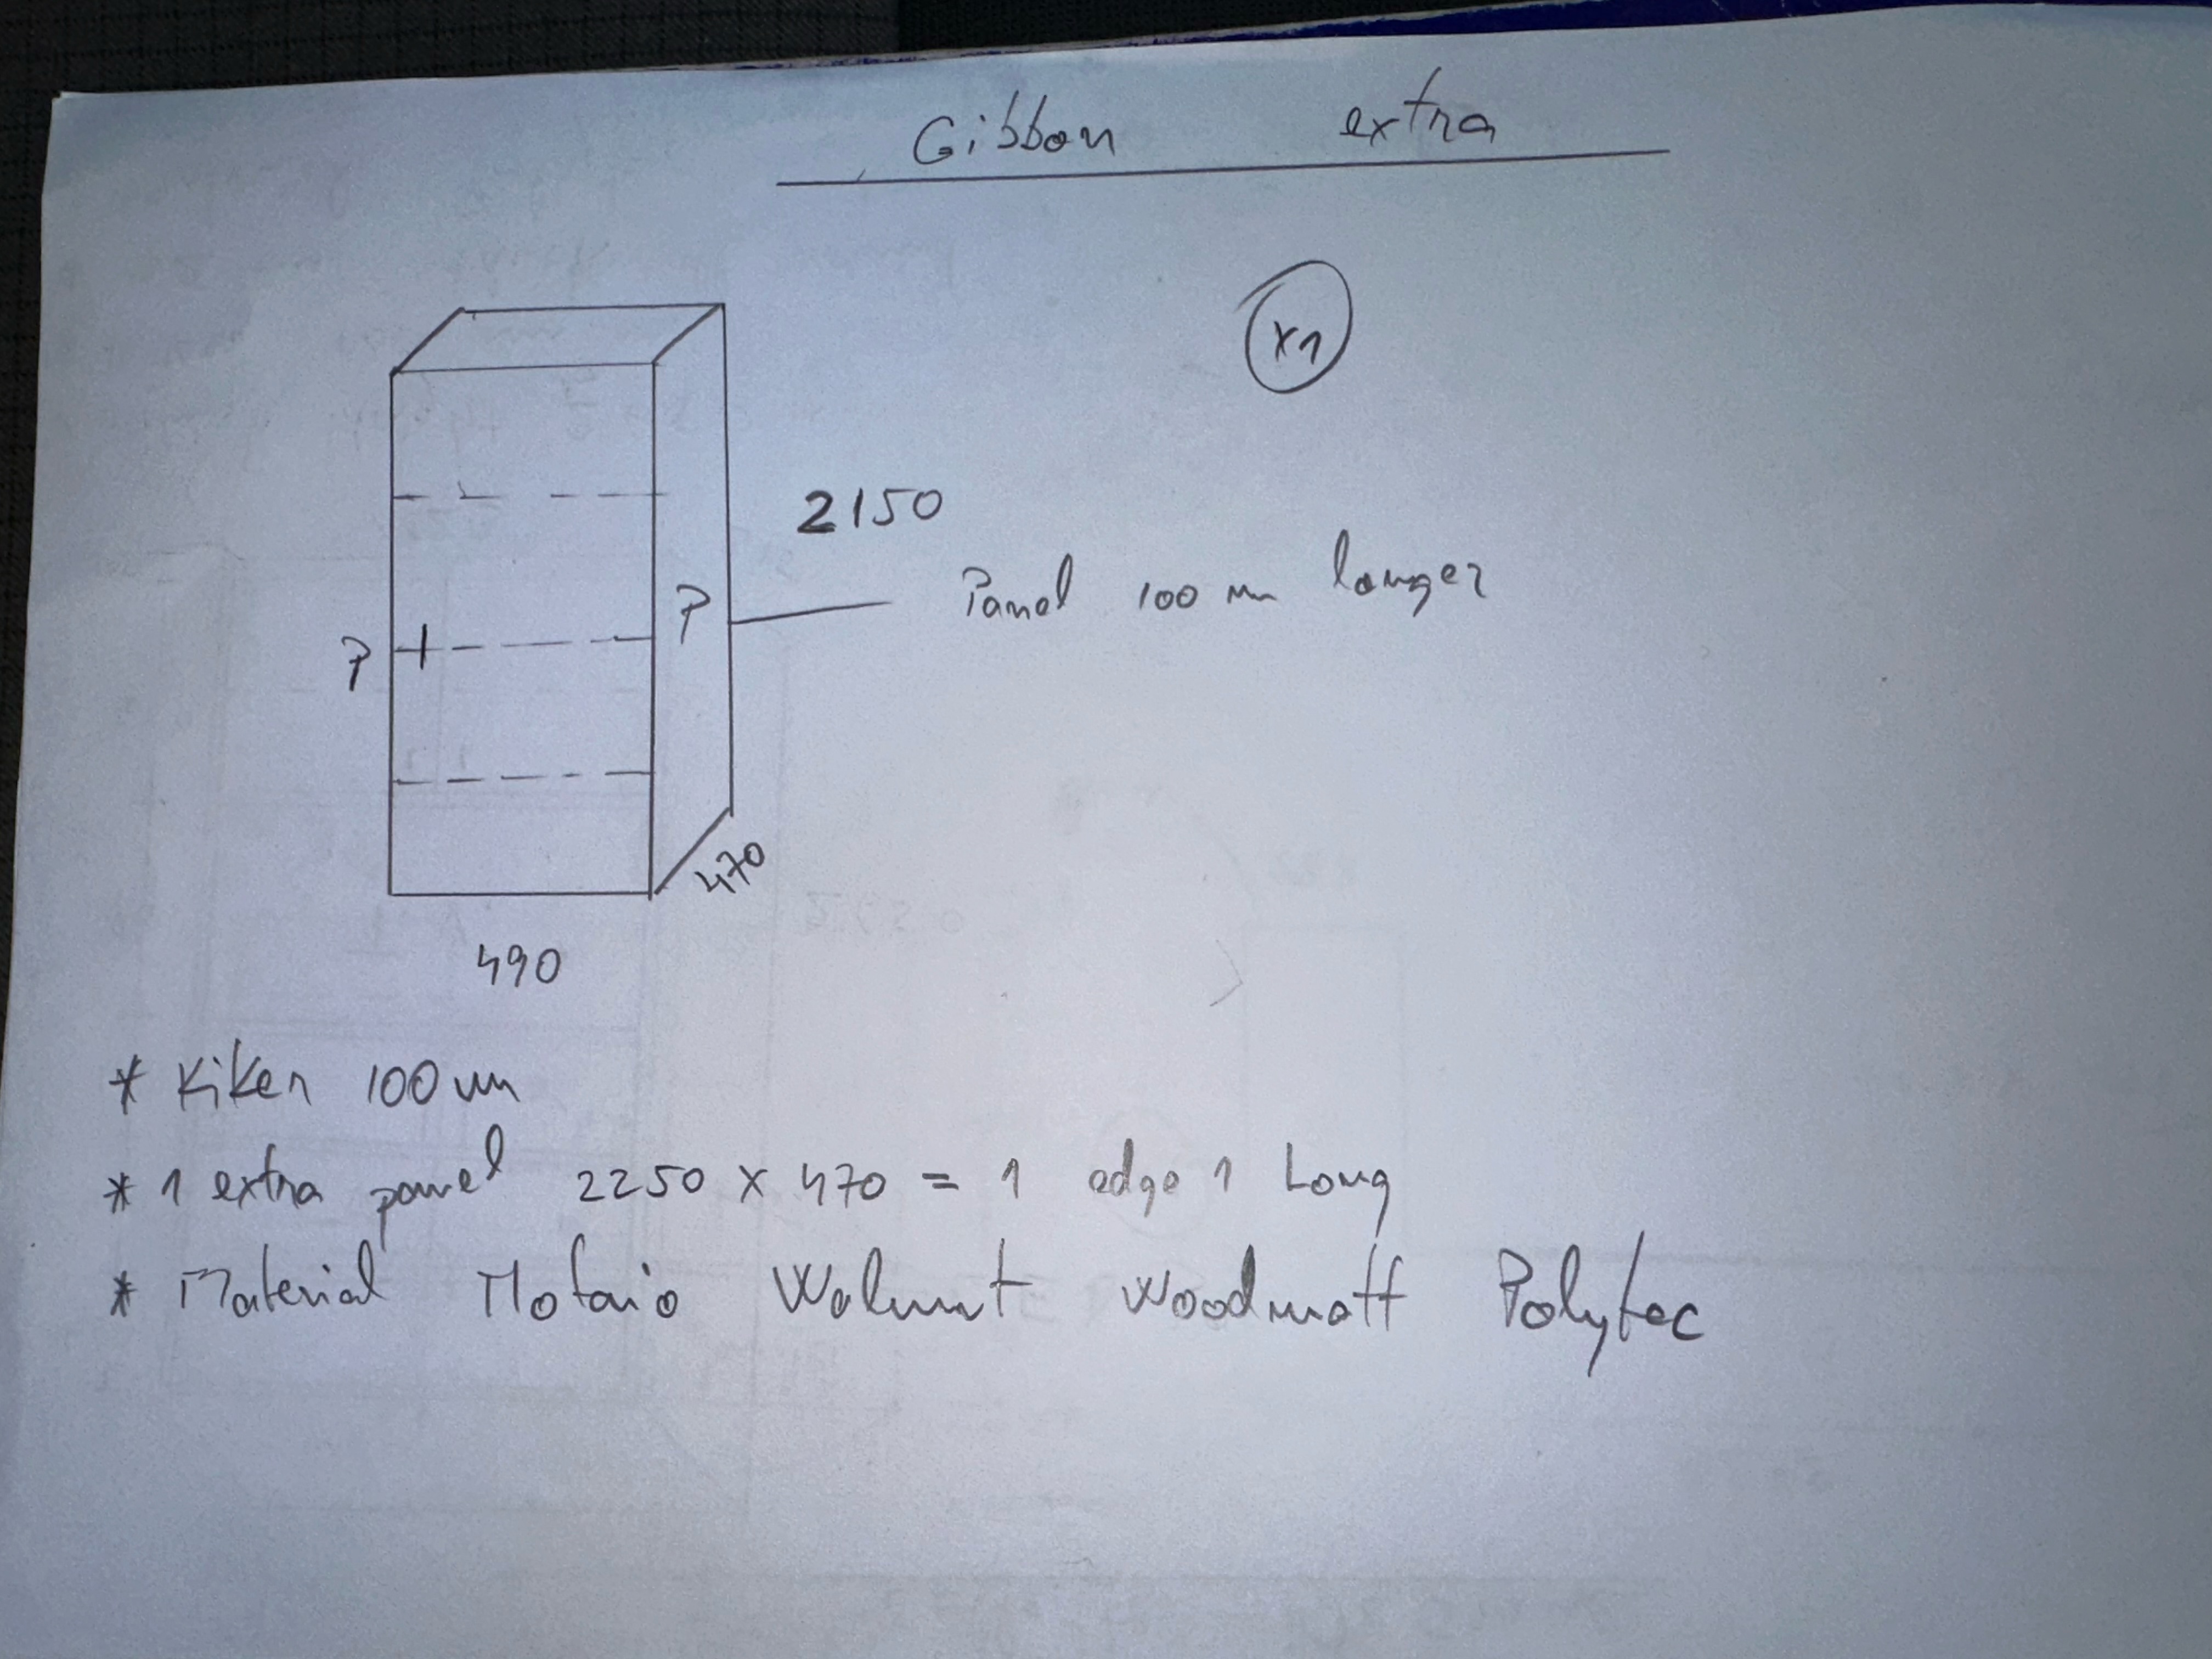 Gibbon extra
x1
2150
Panel 100 mm longer
P
P
470
490
* Kiker 100 mm
* 1 extra panel 2250 x 470 = 1 edge 1 Long
* Material Notaio Walnut Woodmatt Polytec